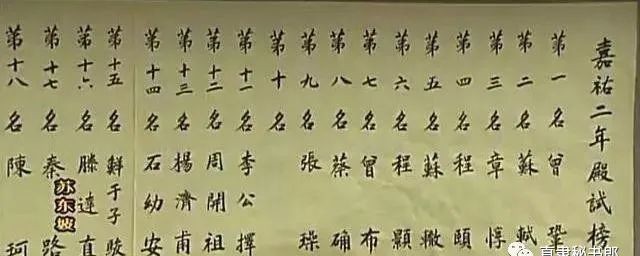 嘉祐二年殿試榜
第一名曾鞏
第二名蘇軾
第三名章惇
第四名程頤
第五名蘇轍
第六名程顥
第七名曾布
第八名蔡确
第九名張璪
第十名
第十一名李公擇
第十二名周開祖
第十三名楊濟甫
第十四名石幼安
第十五名鮮于子駿
第十六名滕達直
第十七名秦路
第十八名陳珂
苏东坡
直隶秘书郎